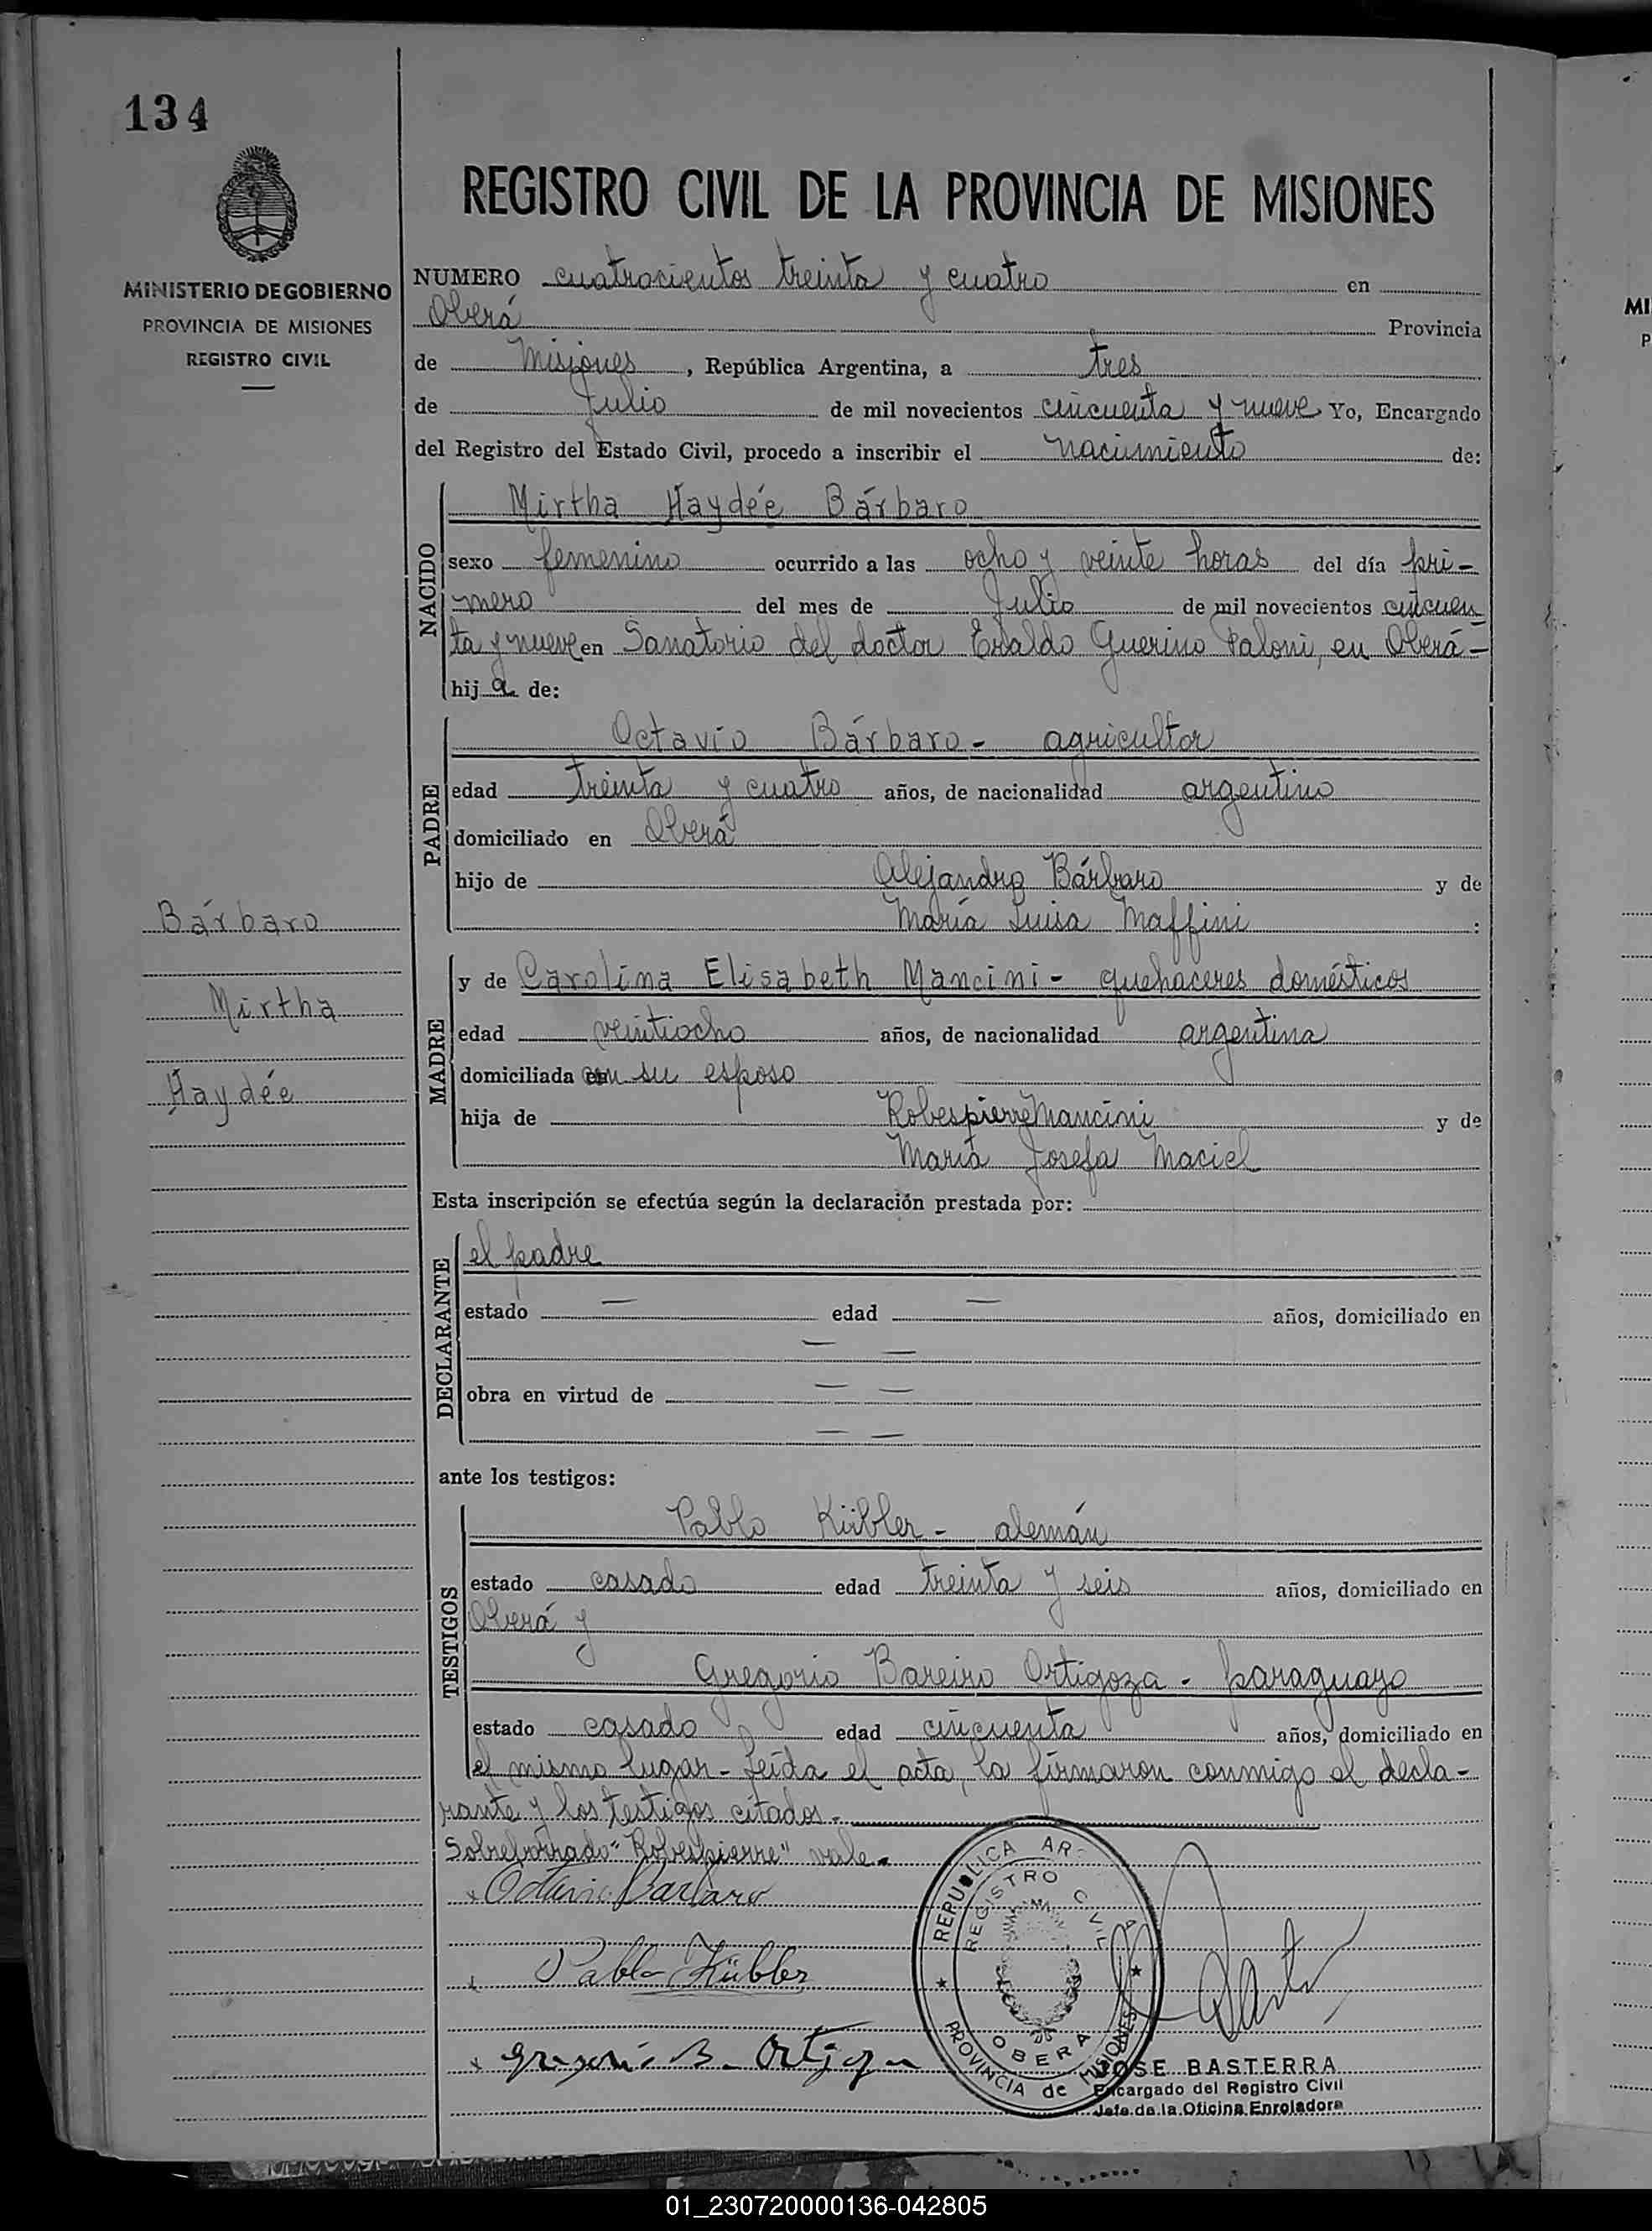 134
MINISTERIO DE GOBIERNO
PROVINCIA DE MISIONES
REGISTRO CIVIL
Bárbaro
Mirtha
Haydée
REGISTRO CIVIL DE LA PROVINCIA DE MISIONES
NUMERO cuatrocientos treinta y cuatro en
Oberá Provincia
de Misiones, República Argentina, a tres
de Julio de mil novecientos cincuenta y nueve Yo, Encargado
del Registro del Estado Civil, procedo a inscribir el nacimiento de:
NACIDO
Mirtha Haydée Bárbaro
sexo femenino ocurrido a las ocho y veinte horas del día pri-
mero del mes de Julio de mil novecientos cincuen
ta y nueve en Sanatorio del doctor Evaldo Guerino Paloni, en Oberá-
hija de:
PADRE
Octavio Bárbaro - agricultor
edad treinta y cuatro años, de nacionalidad argentino
domiciliado en Oberá
hijo de Alejandro Bárbaro y de
María Luisa Maffini :
MADRE
y de Carolina Elisabeth Mancini - quehaceres domésticos
edad veintiocho años, de nacionalidad argentina
domiciliada con su esposo
hija de Robespierre Mancini y de
María Josefa Maciel
Esta inscripción se efectúa según la declaración prestada por:
DECLARANTE
el padre
estado — edad — años, domiciliado en
— —
obra en virtud de — —
— —
ante los testigos:
TESTIGOS
Pablo Kübler - alemán
estado casado edad treinta y seis años, domiciliado en
Oberá y
Gregorio Bareiro Ortigoza - paraguayo
estado casado edad cincuenta años, domiciliado en
el mismo lugar - Leída el acta, la firmaron conmigo el decla-
rante y los testigos citados.-
Sobreborrado "Robespierre" vale.-
Octavio Barbaro
Pablo Kübler
Gregorio B. Ortigoza
REPUBLICA AR
REGISTRO CIVIL
OBERA
PROVINCIA de MISIONES
JOSE BASTERRA
Encargado del Registro Civil
Jefe de la Oficina Enroladora
MI
P
01_230720000136-042805